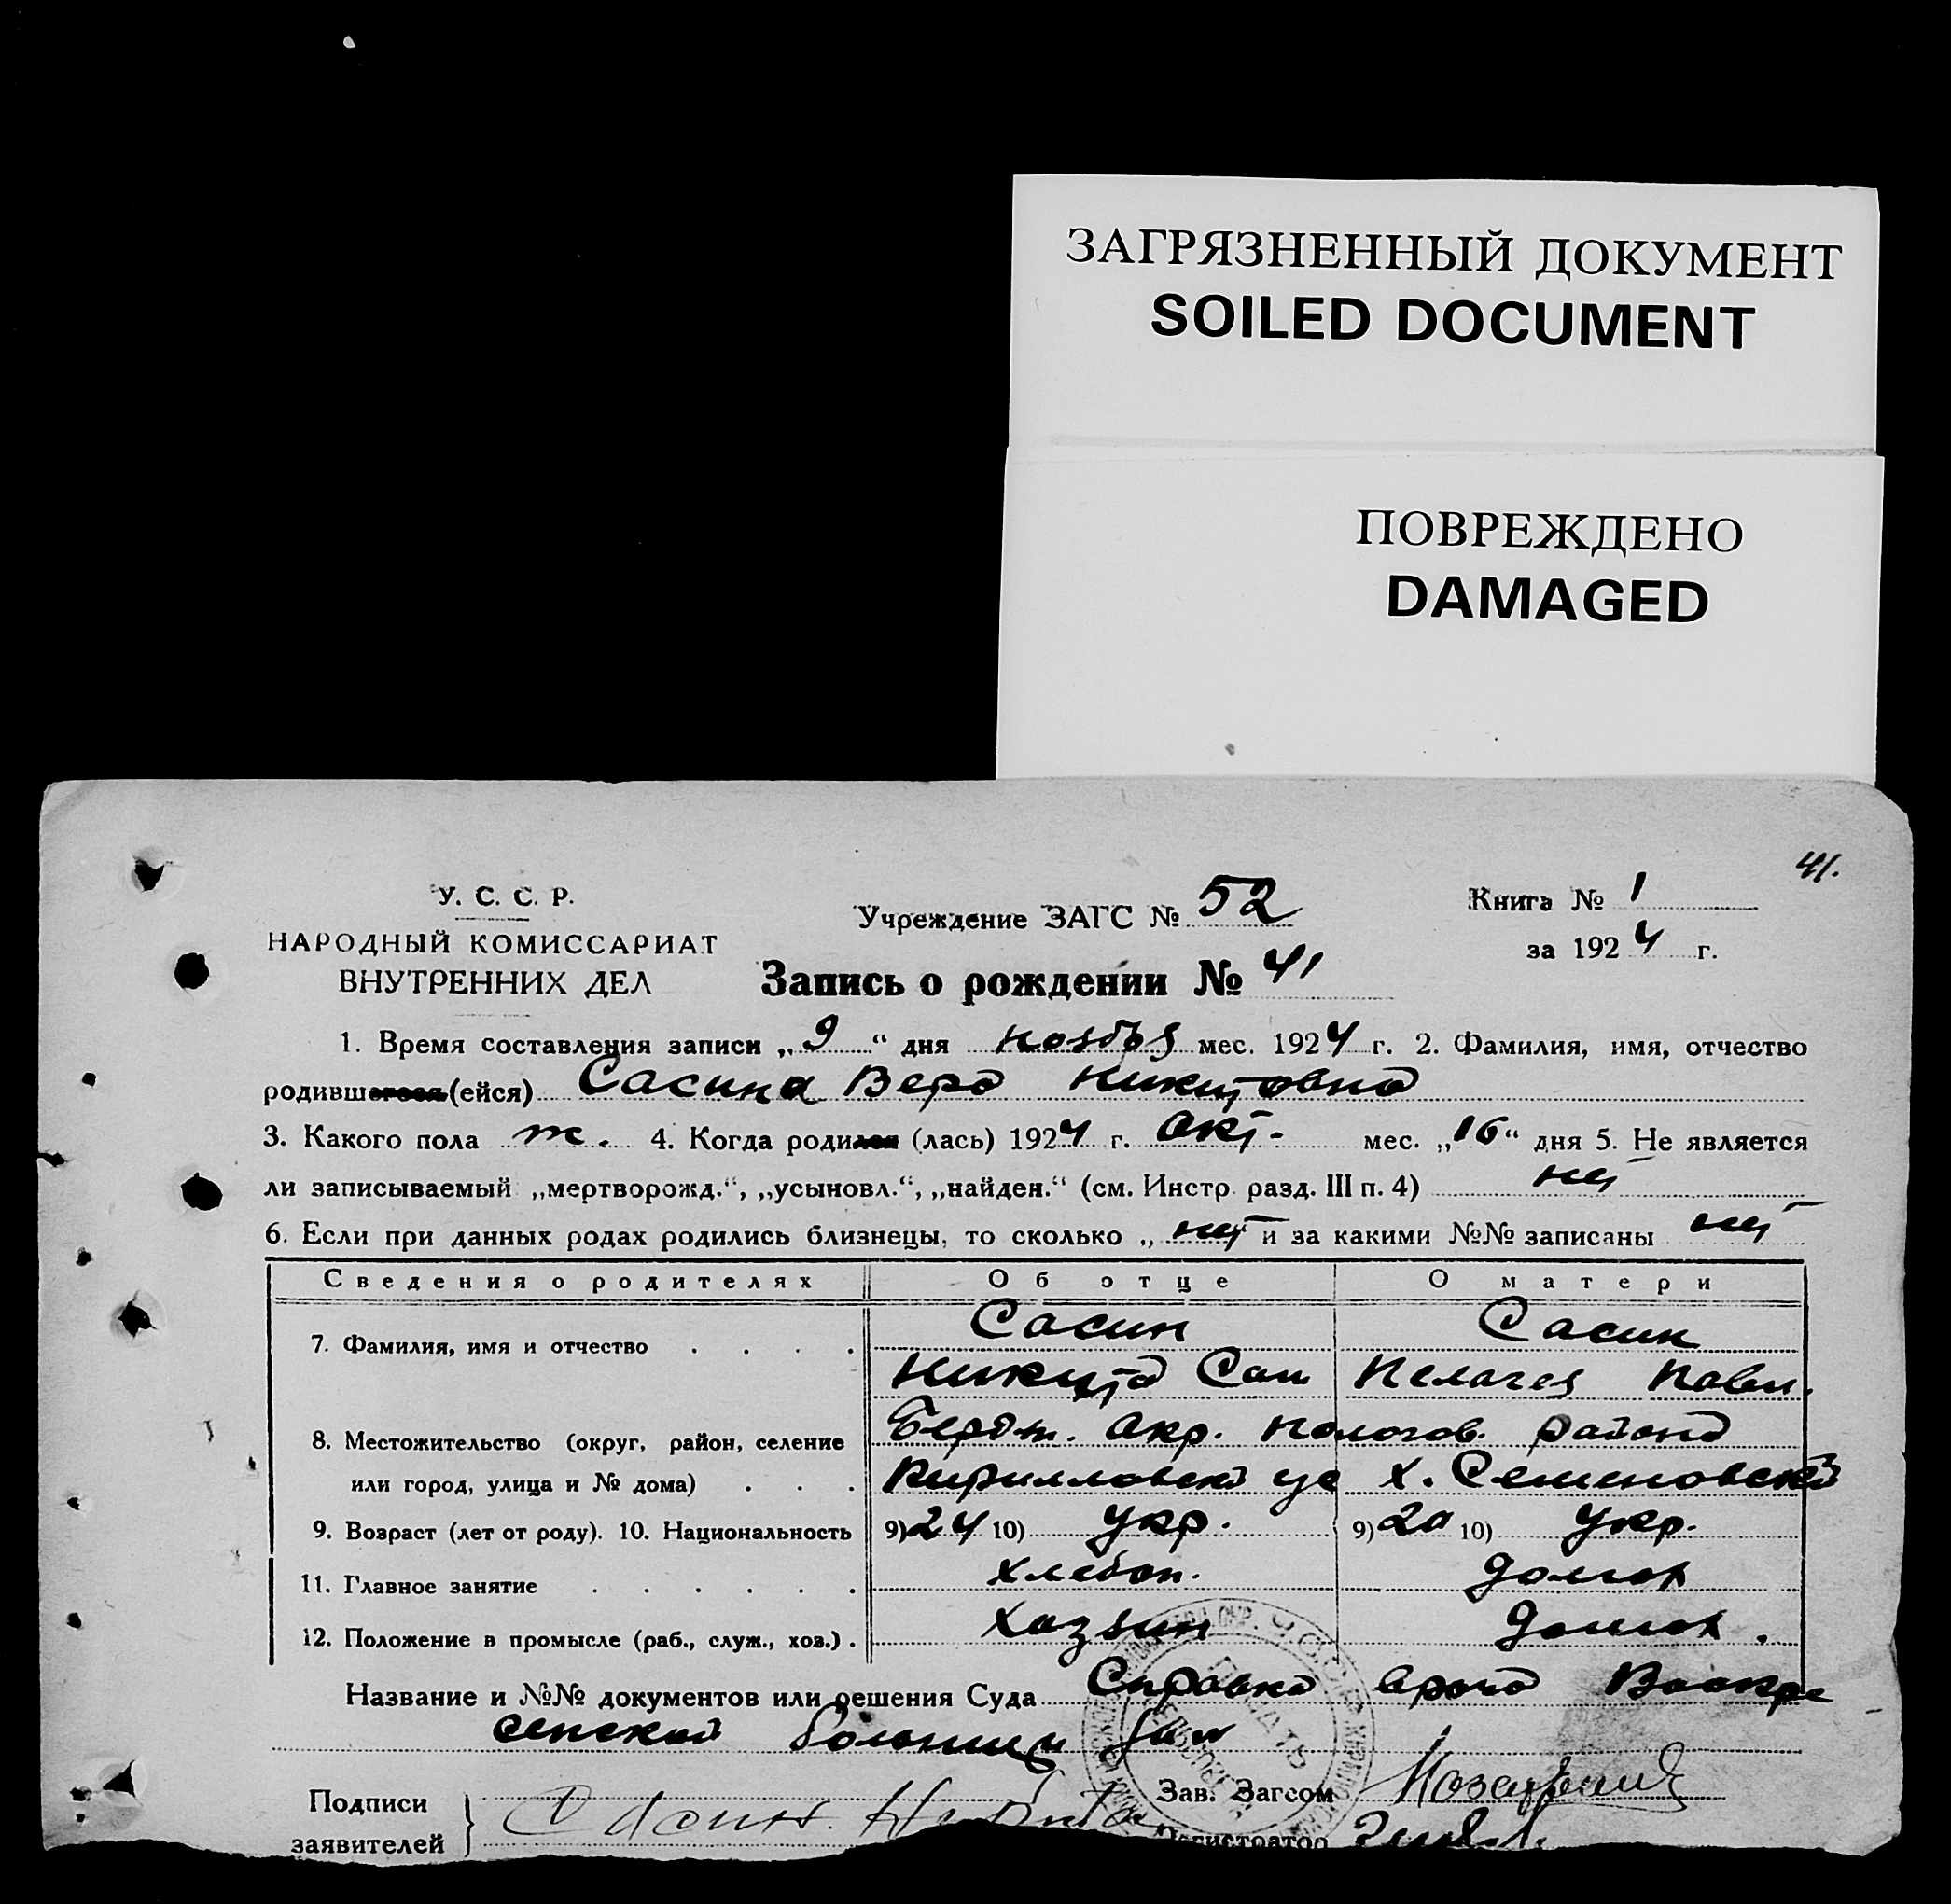 ЗАГРЯЗНЕННЫЙ ДОКУМЕНТ
SOILED DOCUMENT
ПОВРЕЖДЕНО
DAMAGED
41.
У. С. С. Р.
НАРОДНЫЙ КОМИССАРИАТ
ВНУТРЕННИХ ДЕЛ
Учреждение ЗАГС № 52
Книга № 1
за 1924 г.
Запись о рождении № 41
1. Время составления записи „9“ дня ноября мес. 1924 г. 2. Фамилия, имя, отчество
родившегося (ейся) Сасина Вера Никитовна
3. Какого пола ж. 4. Когда родился (лась) 1924 г. окт. мес. „16“ дня 5. Не является
ли записываемый „мертворожд.“, „усыновл.“, „найден.“ (см. Инстр. разд. III п. 4) нет
6. Если при данных родах родились близнецы, то сколько „ нет и за какими №№ записаны нет
Сведения о родителях Об отце О матери
7. Фамилия, имя и отчество Сасин Сасин
Никита Сам Пелагея Павл.
8. Местожительство (округ, район, селение Бердян. окр. Пологов. района
или город, улица и № дома) Кирилловск х. Семеновский
9. Возраст (лет от роду). 10. Национальность 9) 24 10) Укр. 9) 20 10) Укр.
11. Главное занятие хлебоп. домох
12. Положение в промысле (раб., служ., хоз.) хозяин домох.
Название и №№ документов или решения Суда Справка врача Воскре
сенской больницы
Подписи
заявителей
Сасин Никита
Зав. Загсом
Регистратор